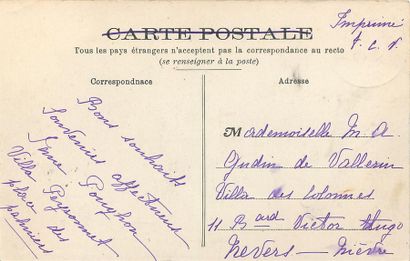 CARTE POSTALE
Imprimé
Tous les pays étrangers n'acceptent pas la correspondance au recto
(se renseigner à la poste)
Correspondnace
Adresse
Bons souhaits
Souvenirs affectueux
Villa Peyronnet
place des
palmiers
Mademoiselle M. A.
Gudin de Vallerin
Villa des Colonnes
11 Bard Victor Hugo
Nevers — Nièvre